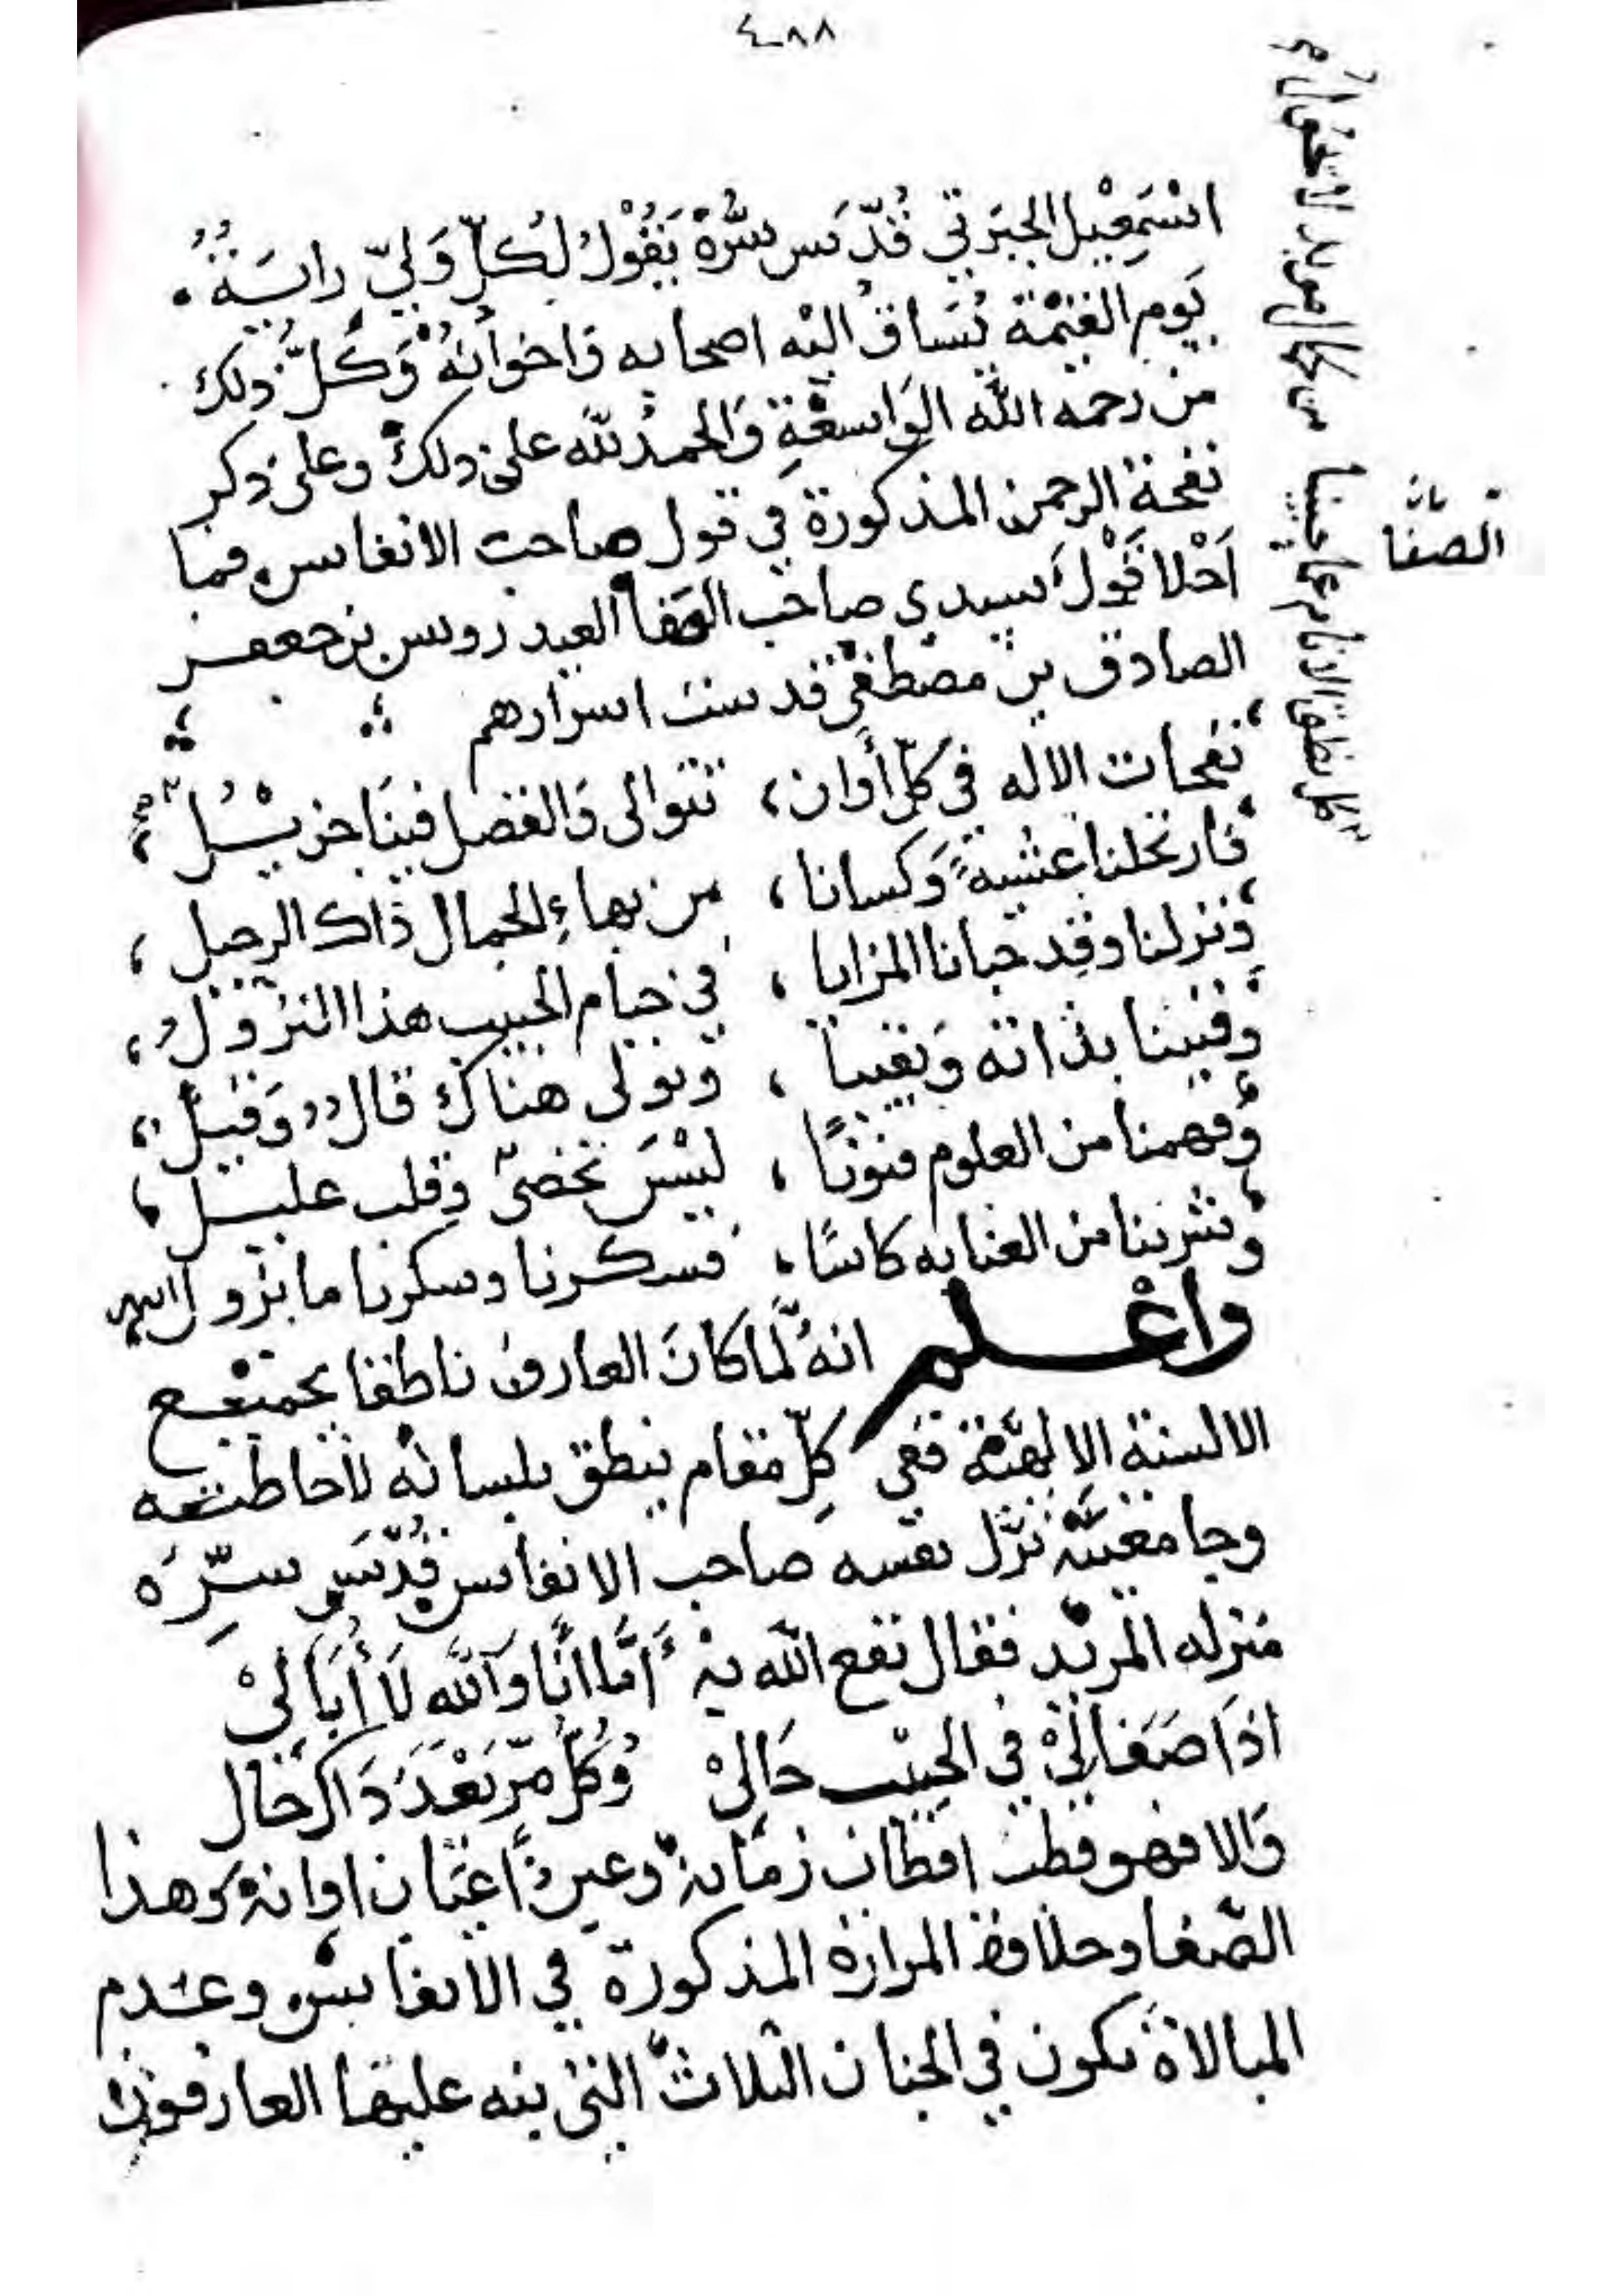 ٤٠٨٨
اسْمعِيْل الجبَرتي قُدّسَ سرُّهْ يَقُوْلُ لكُلّ وَليّ رايَةٌ
يَوم القيٰمَة يُسَاقُ اليْه اصحابه وَاخوانُهُ وَكلُّ ذلك
من رحمة الله الوَاسعَةِ وَالحمدُ للّه على ذلكَ وعلى ذكر
نفحة الرحمن المذكورة في قول صاحب الانفاس فما
اَحْلا قَوْلَ سيدي صاحب الصَفا العيدروس بن جعفر
الصادق بن مصطفى قدست اسرارهم
نفحات الاله في كلّ أوان ، تتوالى وَالفضل فينَا جزيْلُ
فارتحلنا عشيةً وَكسانا ، من بهاءِ الجمال ذاك الرحيل ،
ونزلنا وقد حبانا المزايا ، في خيام الحبيب هذا النزولُ ،
وفنينا بذاته وَبقينا ، وتولى هناك قالٌ وَقيلُ ،
وفهمنا من العلوم فنونًا ، ليْسَ تخصى وقلب عليل ،
وشربنا من العنايه كاسًا ، فسكرنا وسكرنا ما يزول
واعْلم انهُ لَّما كانَ العارف ناطقا بجميْع
الالسنة الالهيَّة ففي كلّ مقام ينطق بلسانه لاحاطته
وجامعيَّته نزَّل نفسه صاحب الانفاس قُدّسَ سرّه
منزله المريد فقال نفع الله به أَمَّا انَا وَاللّه لَا أُبَاليْ
اذَا صَفَا ليْ في الحِبْيب حَاليْ وَكُلُّ مرّ بَعْدَ ذَاكَ حَال
وَالا فهو قطب اقطاب زمانه وعين أعيَان اوانه وَهذا
الصّفا وحلاوة المرارة المذكورة في الانفاس وعدم
المبالاة تكون في الجنان الثلاث التي ينبه عليها العارفون
الصفا